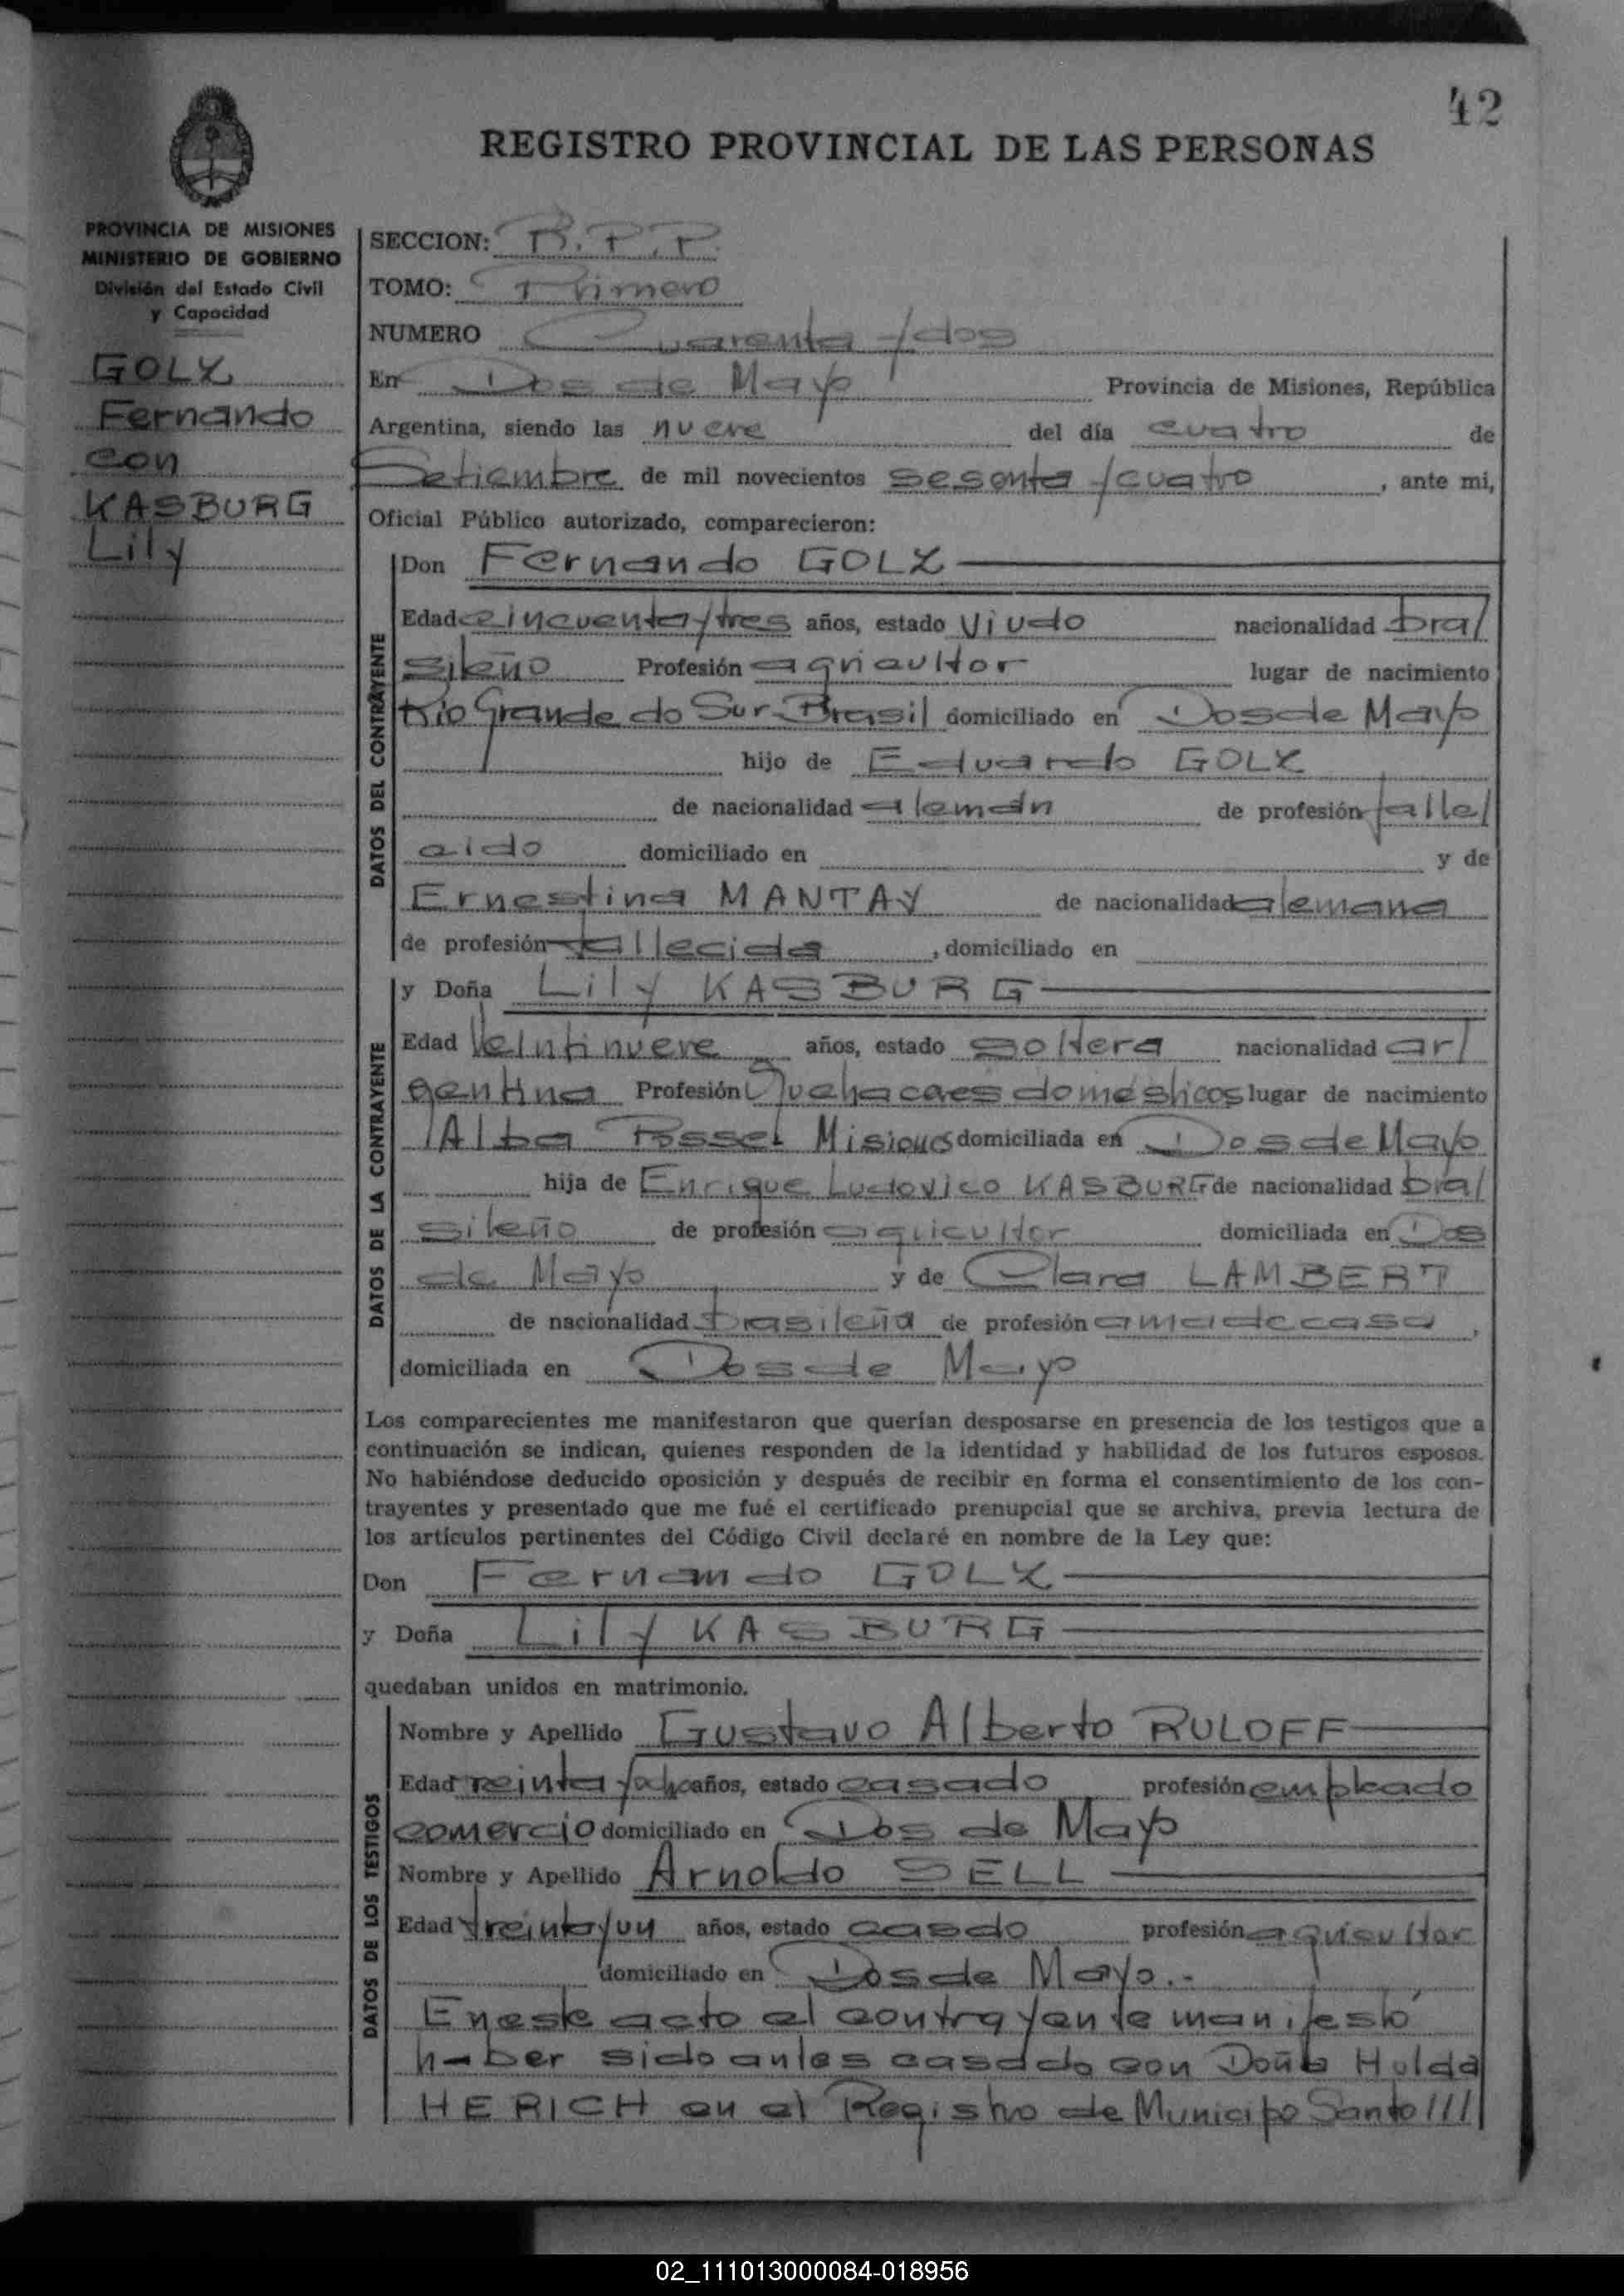 42
REGISTRO PROVINCIAL DE LAS PERSONAS
PROVINCIA DE MISIONES
MINISTERIO DE GOBIERNO
División del Estado Civil
y Capacidad
GOLZ
Fernando
con
KASBURG
Lily
SECCION:
TOMO: Primero
NUMERO Cuarenta y dos
En Dos de Mayo Provincia de Misiones, República
Argentina, siendo las nueve del día cuatro de
Setiembre de mil novecientos sesenta y cuatro, ante mi,
Oficial Público autorizado, comparecieron:
DATOS DEL CONTRAYENTE
Don Fernando GOLZ
Edad cincuenta y tres años, estado viudo nacionalidad bra/
sileño Profesión agricultor lugar de nacimiento
Rio Grande do Sur-Brasil domiciliado en Dos de Mayo
hijo de Eduardo GOLZ
de nacionalidad alemán de profesión falle/
cido domiciliado en y de
Ernestina MANTAY de nacionalidad alemana
de profesión fallecida, domiciliado en
DATOS DE LA CONTRAYENTE
y Doña Lily KASBURG
Edad veintinueve años, estado soltera nacionalidad ar/
gentina Profesión Quehacaes domésticos lugar de nacimiento
Alba Possel Misiones domiciliada en Dos de Mayo
hija de Enrique Ludovico KASBURG de nacionalidad bra/
sileño de profesión agricultor domiciliada en Dos
de Mayo y de Clara LAMBERT
de nacionalidad brasileña de profesión ama de casa,
domiciliada en Dos de Mayo
Los comparecientes me manifestaron que querían desposarse en presencia de los testigos que a
continuación se indican, quienes responden de la identidad y habilidad de los futuros esposos.
No habiéndose deducido oposición y después de recibir en forma el consentimiento de los con-
trayentes y presentado que me fué el certificado prenupcial que se archiva, previa lectura de
los artículos pertinentes del Código Civil declaré en nombre de la Ley que:
Don Fernando GOLZ
y Doña Lily KASBURG
quedaban unidos en matrimonio.
DATOS DE LOS TESTIGOS
Nombre y Apellido Gustavo Alberto RULOFF
Edad treinta y ocho años, estado casado profesión empleado
comercio domiciliado en Dos de Mayo
Nombre y Apellido Arnoldo SELL
Edad treinta y un años, estado casado profesión agricultor
domiciliado en Dos de Mayo.-
En este acto el contrayente manifestó
haber sido antes casado con Doña Hulda
HERICH en el Registro de Municipo Santo ///
02_111013000084-018956